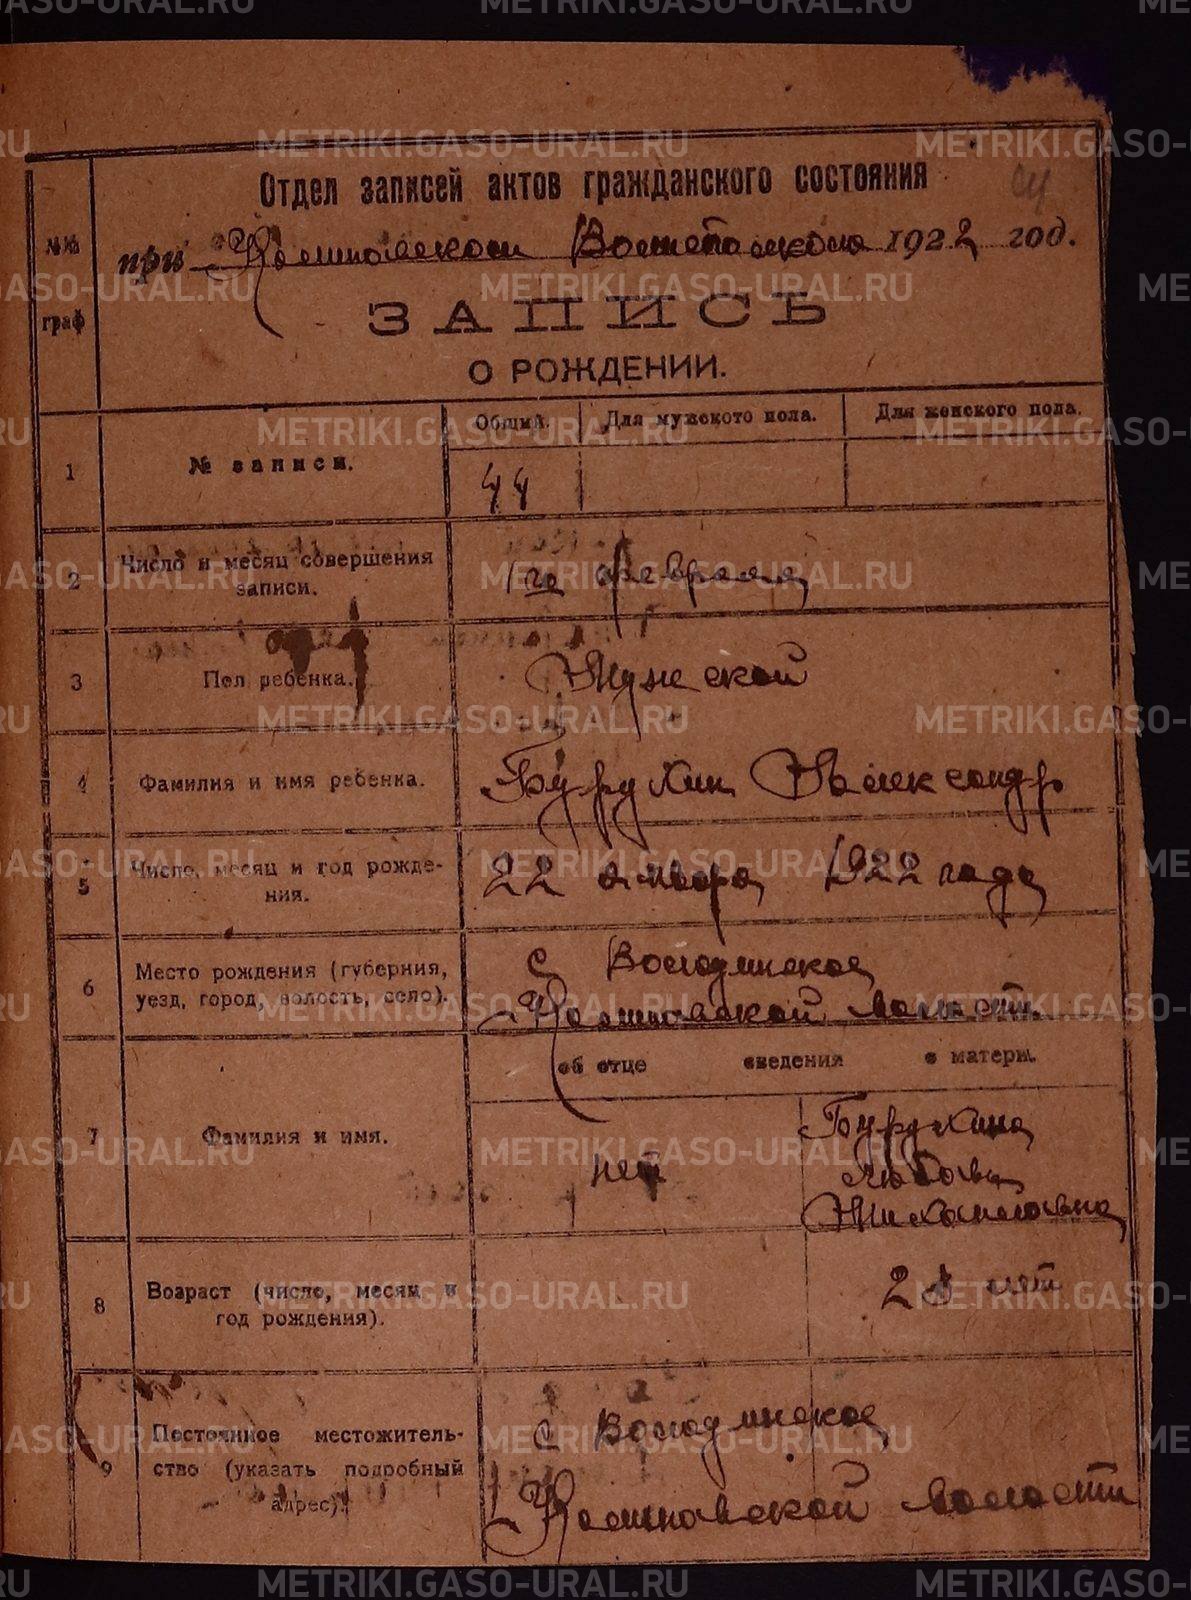 METRIKI.GASO-URAL.RU
Отдел записей актов гражданского состояния
№№ граф
при Кошновском 1922 год.
ЗАПИСЬ
О РОЖДЕНИИ.
Общий. Для мужского пола. Для женского пола.
1 № записи. 44
2 Число и месяц совершения записи. 1го февраля
3 Пол ребенка. Мужской
4 Фамилия и имя ребенка. Бурухин Александр
5 Число, месяц и год рождения. 22 января 1922 года
6 Место рождения (губерния, уезд, город, волость, село). с Вологдинское
волост.
об отце сведения о матери.
7 Фамилия и имя. нет Бурухина
Любовь
Михайловна
8 Возраст (число, месяц и год рождения). 28 лет
9 Постоянное местожительство (указать подробный адрес). с Вологдинское
волости